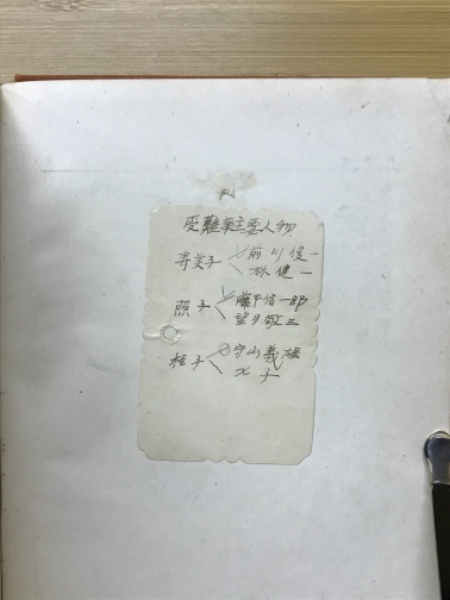 受難華主要人物
寿美子 前川俊一
林健一
照子 藤本信一郎
望月敬三
桂子 守山義雄
子